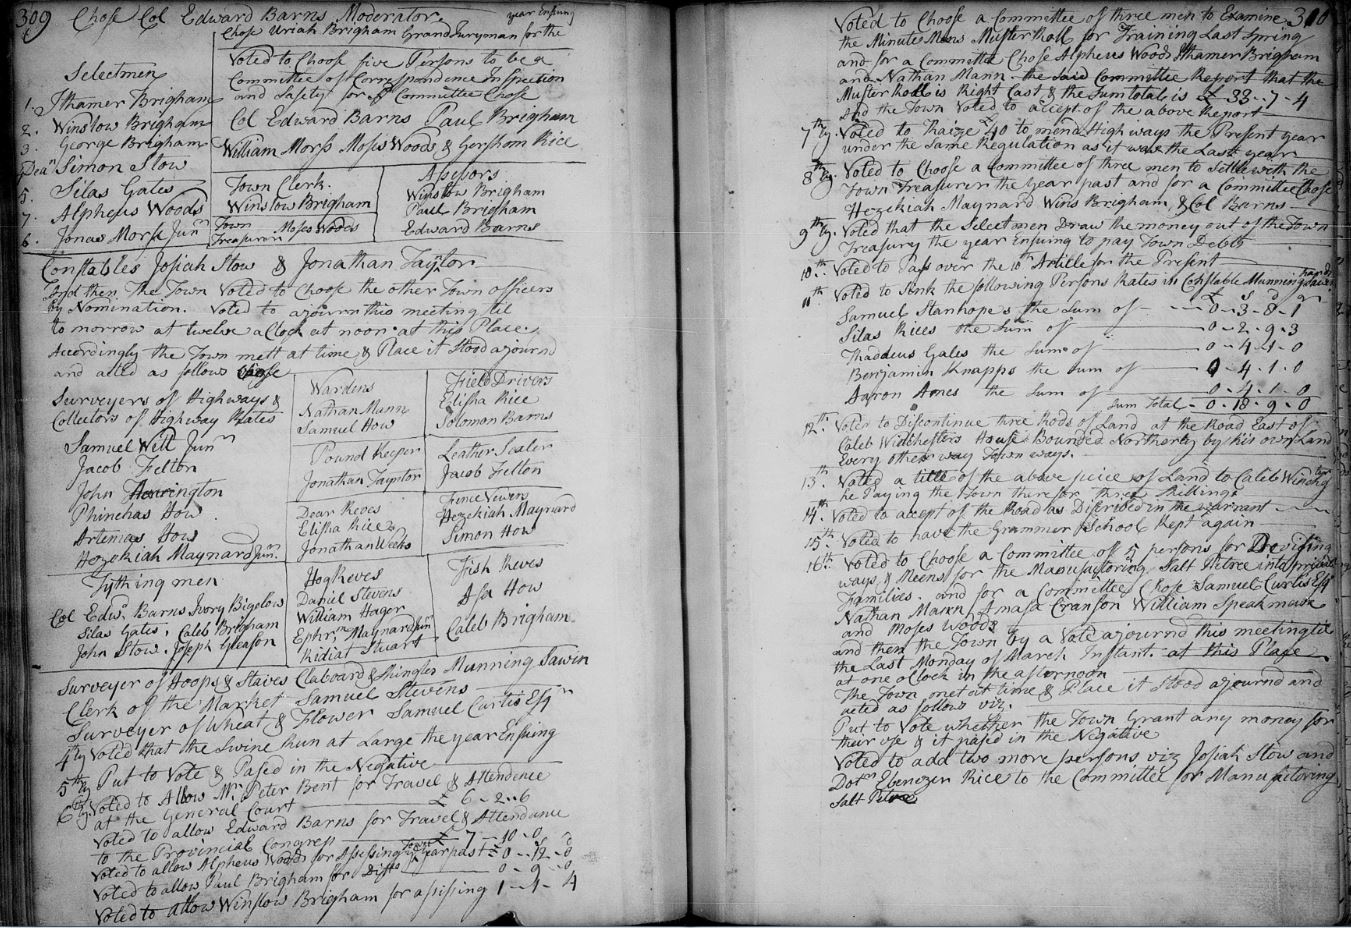 309
Chose Col Edward Barns Moderator
Chose Uriah Brigham Grand Juryman for the year Ensuing
Selectmen
1. Ithamer Brigham
2. Winslow Brigham
3. George Brigham
Dean Simon Stow
5. Silas Gates
7. Alpheus Woods
6. Jonas Morse Junr
Voted to Choose five Persons to be a
Committee of Correspondence Inspection
and Safety for Committee Chose
Col Edward Barns Paul Brigham
William Morss Moses Woods & Gershom Rice
Town Clerk.
Winslow Brigham
Town Treasurer Moses Woods
Asesors
Winslow Brigham
Paul Brigham
Edward Barns
Constables Josiah Stow & Jonathan Tayntor
And then The Town Voted to Choose the other Town officers
by Nomination. Voted to ajourn this meeting til
to morrow at twelve a Clock at noon at this Place
Accordingly the Town mett at time & Place it Stood ajournd
and acted as follows Chose
Surveyers of Highways &
Collectors of Highway Rates
Samuel Will Junr
Jacob Felton
John
Phinehas How
Artemas How
Hezekiah Maynard Junr
Wardens
Nathan Mann
Samuel How
Field Drivers
Elisha Rice
Solomon Barns
Pound Keeper
Jonathan Tayntor
Leather Sealer
Jacob Felton
Dear Reves
Elisha Rice
Jonathan Weeks
Fence Vewers
Hezekiah Maynard
Simon How
Tything men
Col Edwd. Barns Ivory Bigelow
Silas Gates, Caleb Brigham
John Stow. Joseph Gleason
Hog Reves
Daniel Stevens
William Hager
Ephrm Maynard Jun
Kidiat Stuart
Fish Reves
Asa How
Caleb Brigham
Surveyer of Hoops & Staves Claboard & Shingles Munning Sawin
Clerk of the Market Samuel Stevens
Surveyer of Wheat & Flower Samuel Curtis Esqr
4ly Voted that the Swine Run at Large the year Ensuing
5thly Put to Vote & Pased in the Negative
6thly. Voted to Allow Mr. Peter Bent for Travel & Attendence
at the General Court £ 6-2-6
Voted to allow Edward Barns for Travel & Attendance
to the Provincial Congress £ 7-10-0
Voted to allow Alpheus Woods for Assessing Town year past £ 0-12-0
Voted to allow Paul Brigham for Ditto 0-9-0
Voted to allow Winslow Brigham for assissing 1-4-4
310
Voted to Choose a Committee of three men to Examine
the Minute Mens Muster Roll for Training Last Spring
and for a Committe Chose Alpheus Woods Ithamer Brigham
and Nathan Mann the said Committee Report that the
Muster Roll is Right Cast & the Sum total is £ 33-7-4
And the Town Voted to accept of the above Report
7thly. Voted to Raize £40 to mend High ways the Present year
under the Same Regulation as it was the Last year
8thly. Voted to Choose a Committee of three men to Settle with the
Town Treasurer the year past and for a Committee Chose
Hezekiah Maynard Wins Brigham, & Col Barns
9thly. Voted that the Select men Draw the money out of the Town
Treasury the year Ensuing to pay Town Debts
10th. Voted to Pass over the 10th Article for the Present
11th Voted to Sink the following Persons Rates in Constable Munning Sawin hands
£ s d qr
Samuel Stanhope's the Sum of 0-3-8-1
Silas Rices the Sum of 0-2-9-3
Thaddeus Gates the Sum of 0-4-1-0
Benjamin Knapps the Sum of 0-4-1-0
Aaron the Sum of 0-4-1-0
Sum Total 0-18-9-0
12th. Voted to Discontinue three Rods of Land at the Road East of
Caleb Wichesters House Bounded Northerly by his own Land
Every other way Town ways.
13th. Voted a title of the above peice of Land to Caleb Winchester
he Paying the Town therefor three Shilings
14th. Voted to accept of the Road as Discribed in the warrant
15th. Voted to have the Grammer School Kept again
16th. Voted to Choose a Committee of 5 persons for Devising
ways & Meens for the Manufactoring Salt Petre into private
Families. and for a Committee Chose Samuel Curtis Esq
Nathan Mann, Amasa Cranson William Speakman
and Moses Woods
and then the Town by a Vote ajournd this meeting til
the Last Monday of March Instant. at this Place
at one oClock in the afternoon
The Town met at time & Place it Stood ajournd and
acted as follows viz.
Put to Vote whether the Town Grant any money for
their use & it pased in the Negative
Voted to add two more persons viz Josiah Stow and
Dotr Ebenezer Rice to the Committee for Manufactoring
Salt Petre